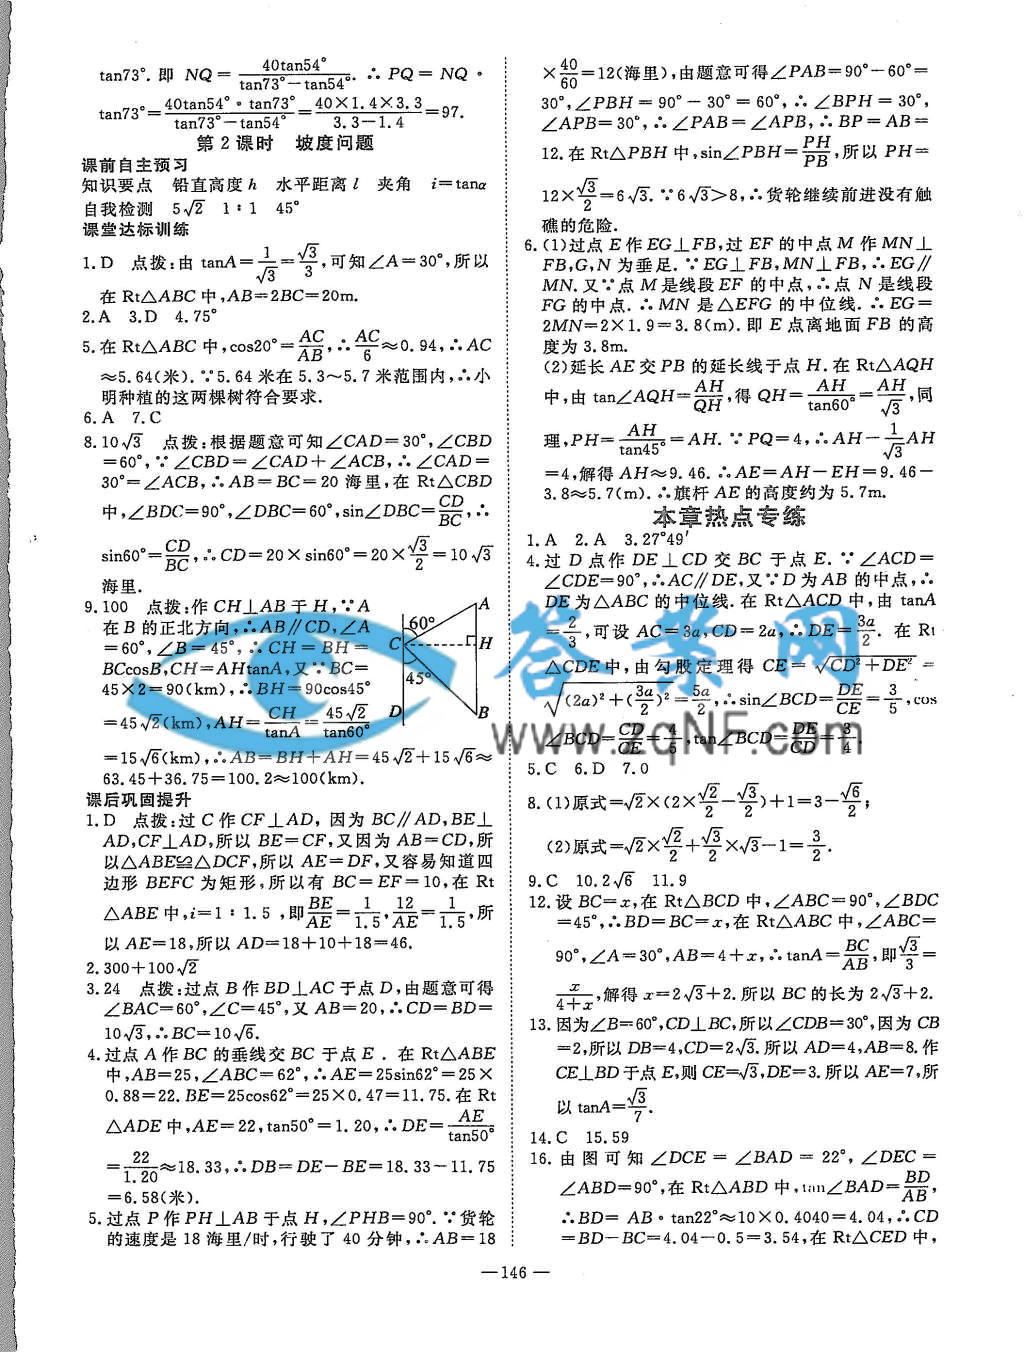 tan73°. 即 NQ = 40tan54°/(tan73°-tan54°). ∴ PQ = NQ ·
tan73°=40tan54°·tan73°/(tan73°-tan54°)=40×1.4×3.3/(3.3-1.4)=97.
第2课时 坡度问题
课前自主预习
知识要点 铅直高度h 水平距离l 夹角 i=tanα
自我检测 5√2 1∶1 45°
课堂达标训练
1.D 点拨:由 tanA=1/√3=√3/3,可知∠A=30°,所以
在Rt△ABC中,AB=2BC=20m.
2.A 3.D 4.75°
5.在Rt△ABC中,cos20°=AC/AB,∴AC/6≈0.94,∴AC
≈5.64(米).∵5.64米在5.3~5.7米范围内,∴小
明种植的这两棵树符合要求.
6.A 7.C
8.10√3 点拨:根据题意可知∠CAD=30°,∠CBD
=60°,∵∠CBD=∠CAD+∠ACB,∴∠CAD=
30°=∠ACB,∴AB=BC=20海里,在Rt△CBD
中,∠BDC=90°,∠DBC=60°,sin∠DBC=CD/BC,∴
sin60°=CD/BC,∴CD=20×sin60°=20×√3/2=10√3
海里.
9.100 点拨:作CH⊥AB于H,∵A
在B的正北方向,∴AB∥CD,∠A
=60°,∠B=45°,∴CH=BH=
BCcosB,CH=AHtanA,又∵BC=
45×2=90(km),∴BH=90cos45°
=45√2(km),AH=CH/tanA=45√2/tan60°
=15√6(km),∴AB=BH+AH=45√2+15√6≈
63.45+36.75=100.2≈100(km).
A
60°
C
H
45°
D
B
课后巩固提升
1.D 点拨:过C作CF⊥AD, 因为BC∥AD,BE⊥
AD,CF⊥AD,所以BE=CF,又因为AB=CD,所
以△ABE≌△DCF,所以AE=DF,又容易知道四
边形BEFC为矩形,所以有BC=EF=10,在Rt
△ABE中,i=1∶1.5,即BE/AE=1/1.5,12/AE=1/1.5,所
以AE=18,所以AD=18+10+18=46.
2.300+100√2
3.24 点拨:过点B作BD⊥AC于点D,由题意可得
∠BAC=60°,∠C=45°,又AB=20,∴CD=BD=
10√3,∴BC=10√6.
4.过点A作BC的垂线交BC于点E. 在Rt△ABE
中,AB=25,∠ABC=62°,∴AE=25sin62°=25×
0.88=22.BE=25cos62°=25×0.47=11.75.在Rt
△ADE中,AE=22,tan50°=1.20,∴DE=AE/tan50°
=22/1.20≈18.33,∴DB=DE-BE=18.33-11.75
=6.58(米).
5.过点P作PH⊥AB于点H,∠PHB=90°.∵货轮
的速度是18海里/时,行驶了40分钟,∴AB=18
×40/60=12(海里),由题意可得∠PAB=90°-60°=
30°,∠PBH=90°-30°=60°,∴∠BPH=30°,
∠APB=30°,∴∠PAB=∠APB,∴BP=AB=
12.在Rt△PBH中,sin∠PBH=PH/PB,所以PH=
12×√3/2=6√3.∵6√3>8,∴货轮继续前进没有触
礁的危险.
6.(1)过点E作EG⊥FB,过EF的中点M作MN⊥
FB,G,N为垂足.∵EG⊥FB,MN⊥FB,∴EG∥
MN.又∵点M是线段EF的中点,∴点N是线段
FG的中点.∴MN是△EFG的中位线.∴EG=
2MN=2×1.9=3.8(m).即E点离地面FB的高
度为3.8m.
(2)延长AE交PB的延长线于点H.在Rt△AQH
中,由tan∠AQH=AH/QH,得QH=AH/tan60°=AH/√3,同
理,PH=AH/tan45°=AH.∵PQ=4,∴AH-1/√3AH
=4,解得AH≈9.46.∴AE=AH-EH=9.46-
3.8≈5.7(m).∴旗杆AE的高度约为5.7m.
本章热点专练
1.A 2.A 3.27°49′
4.过D点作DE⊥CD交BC于点E.∵∠ACD=
∠CDE=90°,∴AC∥DE,又∵D为AB的中点,∴
DE为△ABC的中位线.在Rt△ACD中,由tanA
=2/3,可设AC=3a,CD=2a,∴DE=3a/2. 在Rt
△CDE中,由勾股定理得CE=√(CD²+DE²)=
√((2a)²+(3a/2)²)=5a/2,∴sin∠BCD=DE/CE=3/5,cos
∠BCD=CD/CE=4/5,tan∠BCD=DE/CD=3/4.
5.C 6.D 7.0
8.(1)原式=√2×(2×√2/2-√3/2)+1=3-√6/2;
(2)原式=√2×√2/2+√3/2×√3-1=3/2.
9.C 10.2√6 11.9
12.设BC=x,在Rt△BCD中,∠ABC=90°,∠BDC
=45°,∴BD=BC=x,在Rt△ABC中,∠ABC=
90°,∠A=30°,AB=4+x,∴tanA=BC/AB,即√3/3=
x/(4+x),解得x=2√3+2.所以BC的长为2√3+2.
13.因为∠B=60°,CD⊥BC,所以∠CDB=30°,因为CB
=2,所以DB=4,CD=2√3.所以AD=4,AB=8.作
CE⊥BD于点E,则CE=√3,DE=3.所以AE=7,所
以tanA=√3/7.
14.C 15.59
16.由图可知∠DCE=∠BAD=22°,∠DEC=
∠ABD=90°,在Rt△ABD中,tan∠BAD=BD/AB,
∴BD=AB·tan22°≈10×0.4040=4.04,∴CD
=BD-BC=4.04-0.5=3.54,在Rt△CED中,
答案网
www.zqNF.com
—146—